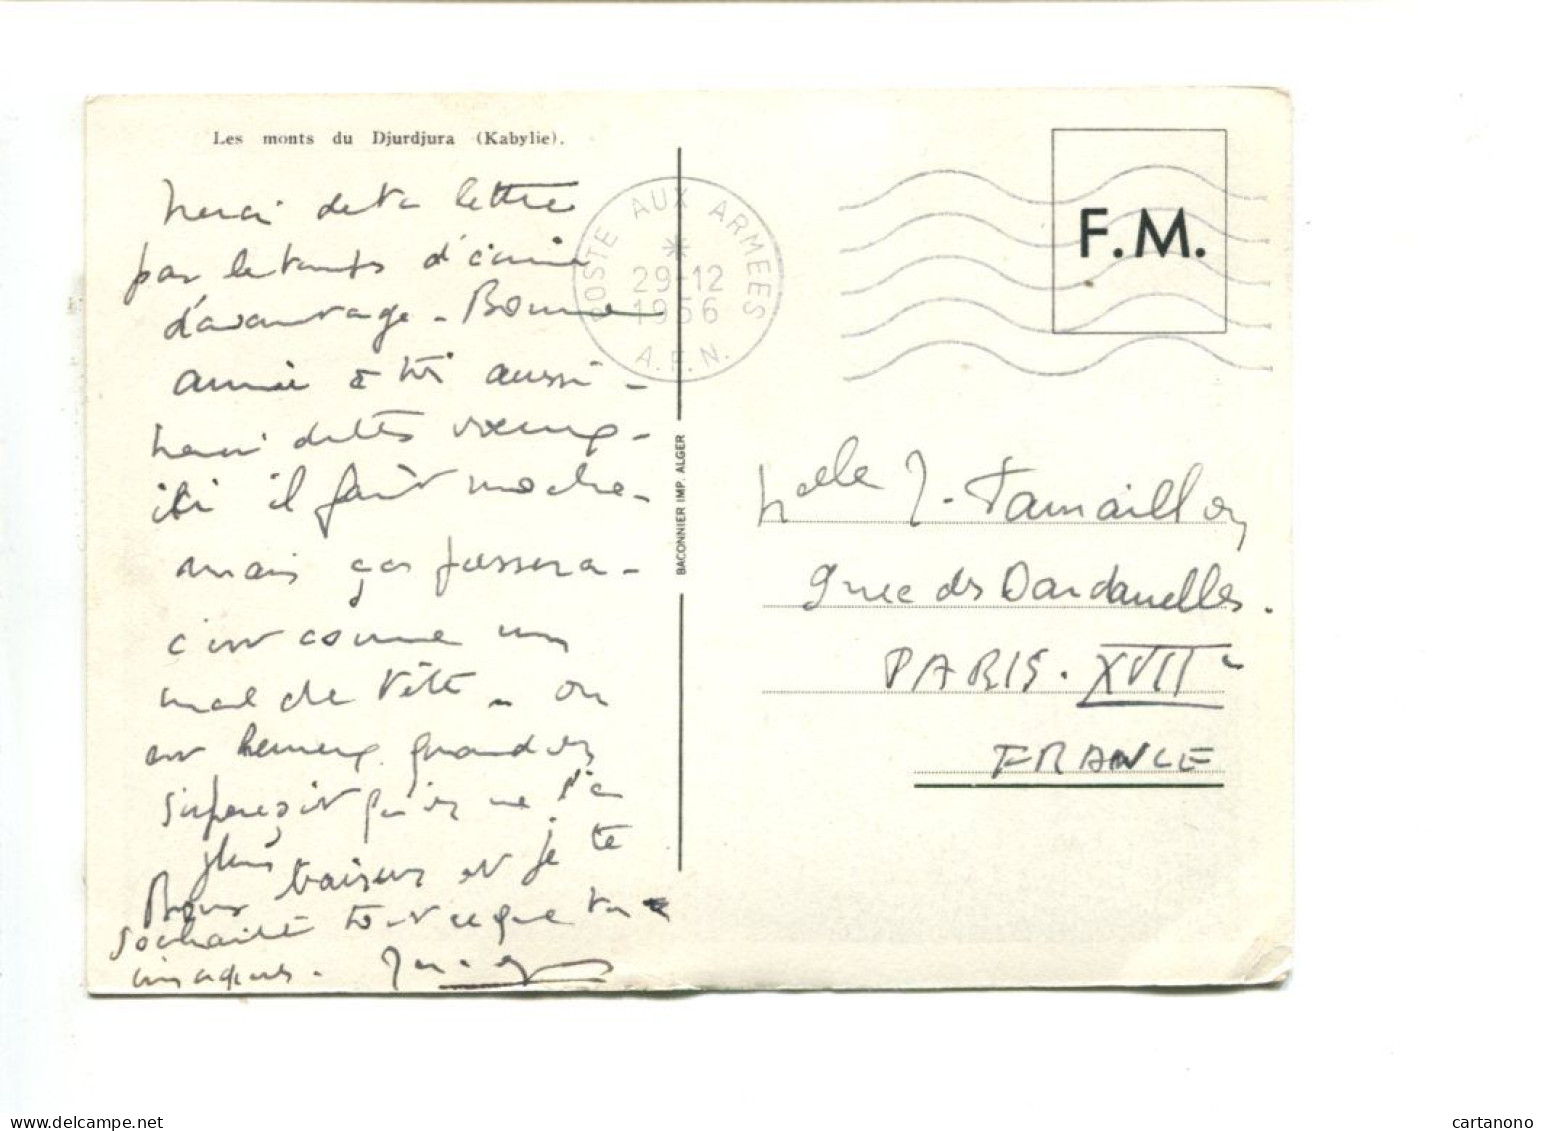 Les monts du Djurdjura (Kabylie).
Merci de ta lettre
pas le temps d'écrire
d'avantage - Bonne
année à toi aussi -
Merci de tes vœux -
ici il fait moche -
mais ça passera -
c'est comme un
mal de tête - on
est heureux quand on
s'aperçoit qu'on ne l'a
plus
Bons baisers et je te
souhaite tout ce que tu
imagines.
POSTE AUX ARMEES
29-12
1956
A.F.N.
F.M.
BACONNIER IMP. ALGER
Melle J. Tamaillon
9 rue des Dardanelles.
PARIS. XVII e
FRANCE
cartanono